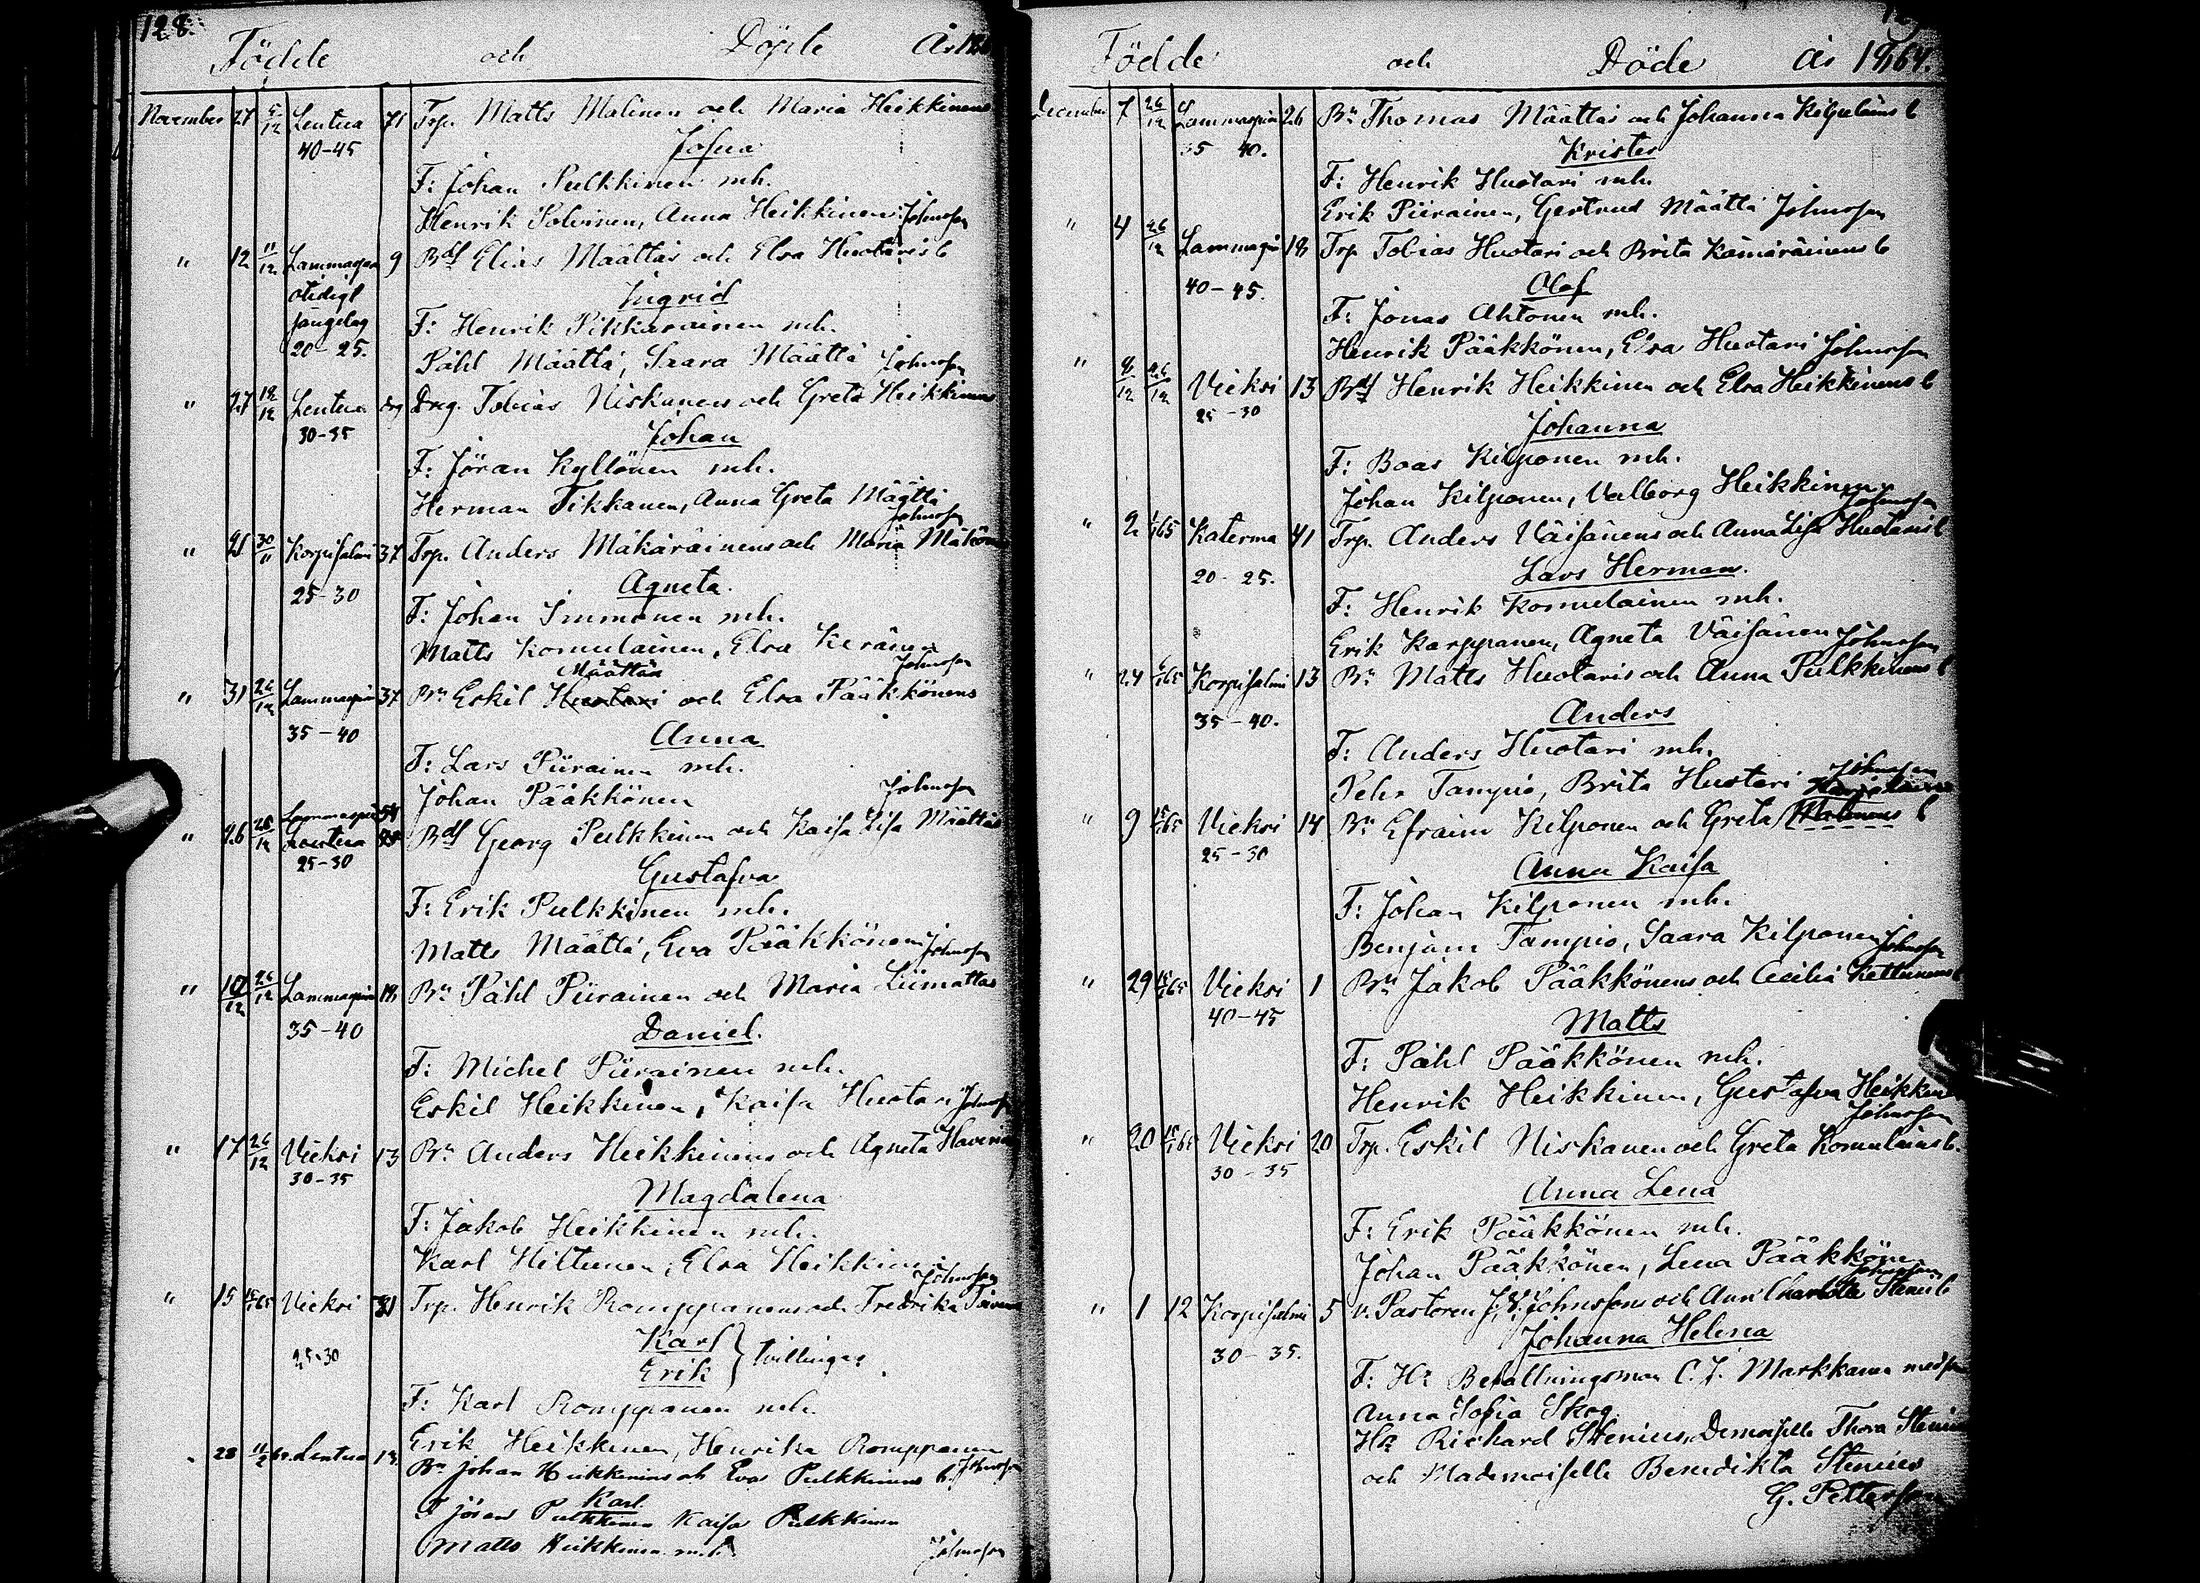 128.
Födde och Döpte År
November 27 5/12 Lentua 71 Trp. Matts Malinen och Maria Heikkinens
40-45 Josua
F: Johan Pulkkinen mh.
Henrik Polvinen, Anna Heikkinen Johnsson
" 12 11/12 Lammasper 9 Bdf Elias Määttäs och Elsa Huotaris b
Ingrid
20-25. F: Henrik Pikkarainen mh.
Påhl Määttä, Saara Määttä Johnsson
" 27 18/12 Lentua drg Drg. Tobias Niskanens och Greta Heikkinens
30-35 Johan
F: Jöran Kyllönen mh.
Herman Tikkanen, Anna Greta Määttä
Johnsson
" 25 30/11 Korpisalmi 37 Trp. Anders Mäkäräinens och Maria
25-30 Agneta.
F: Johan Immonen mh.
Matts Komulainen, Elsa Keränen
Johnsson
Määttäs
" 31 26/12 Lammasperä 37 Bn Eskil Huotari och Elsa Pääkkönens
35-40 Anna
F: Lars Piirainen mh.
Johan Pääkkönen Johnsson
Lammasperä 54
" 26 26/12 Lentua Bdf Georg Pulkkinen och Kaisa Lisa Määttäs
25-30 Gustafva
F: Erik Pulkkinen mh.
Matts Määttä, Eva Pääkkönen Johnsson
" 10/12 26/12 Lammasperä 18 Bn Påhl Piirainen och Maria Liimattas
35-40 Daniel.
F: Michel Piirainen mh.
Eskil Heikkinen, Kaisa Huotari Johnsson
" 17 26/12 Vieksi 13 Bn Anders Heikkinens och Agneta
30-35 Magdalena
F: Jakob Heikkinen mh.
Karl Hiltunen, Elsa Heikkinen
Johnsson
" 15 15/1 65 Vieksi 31 Trp. Henrik Romppanens och Fredrika
25-30 Karl
Erik } tvillingar
F: Karl Romppanen mh.
Erik Heikkinen, Henrika Romppanen
Johnsson
28 Lentua Bn Johan Heikkinens och Eva Pulkkinens b.
Karl
F Jöran Pulkkinen Kaisa Pulkkinen
Matts Heikkinen mh. Johnsson
Födde och Döde År 1864.
December 7 26/12 Lammasperä 26 Bn Thomas Määttäs och Johanna Kilpeläins b
35-40. Krister
F: Henrik Huotari mh.
Erik Piirainen, Gertrud Määttä Johnsson
" 4 26/12 Lammasperä 18 Trp Tobias Huotari och Brita Kämäräinens b
40-45. Olof
F: Jonas Ahtonen mh.
Henrik Pääkkönen, Elsa Huotari Johnsson
" 26/12 Vieksi 13 Bdf Henrik Heikkinen och Elsa Heikkinens b
25-30 Johanna
F: Boas Kilponen mh.
Johan Kilponen, Valborg Heikkinen
Johnsson
" 2 65 Katerma 41 Trp. Anders Väisänens och Anna Lisa Huotaris b
20-25. Lars Herman.
F: Henrik Komulainen mh.
Erik Karppanen, Agneta Väisänen Johnsson
" 24 65 Korpisalmi 13 Bn Matts Huotaris och Anna Pulkkinens b
35-40. Anders
F: Anders Huotari mh.
Pehr Tampio, Brita Huotari Johnsson
" 9 65 Vieksi 14 Bn Efraim Kilponen och Greta b
25-30 Anna Kaisa
F: Johan Kilponen mh.
Benjam Tampio, Saara Kilponen Johnsson
" 29 65 Vieksi 1 Bn Jakob Pääkkönens och Cecilia Kettunens b
40-45 Matts
F: Påhl Pääkkönen mh.
Henrik Heikkinen, Gustafva Heikkinen
Johnsson
" 20 65 Vieksi 20 Trp. Eskil Niskanen och Greta Komulains b.
30-35 Anna Lena
F: Erik Pääkkönen mh.
Johan Pääkkönen, Lena Pääkkönen
Johnsson
" 1 12 Korpisalmi 5 v. Pastoren J. Johnssons och Ann Charlotta Stenii b
30-35. Johanna Helena
F: Hr Befallningsman C. J. Markkanen med fru
Anna Sofia Skog
Hr Richard Stenius, Demoiselle Thora Stenius
och Mademoiselle Benedikta Stenius
G. Petterson